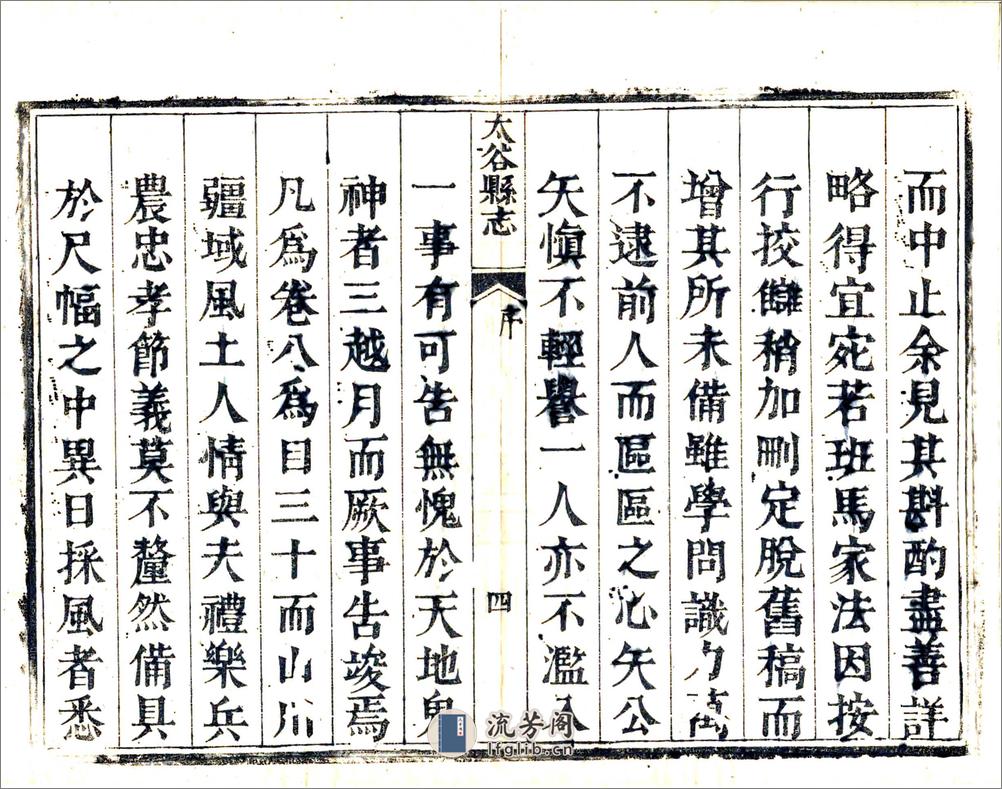 而中止余見其斟酌盡善詳
略得宜宛若班馬家法因按
行挍讎稍加刪定脫舊稿而
增其所未備雖學問識力萬
不逮前人而區區之心矢公
矢愼不輕譽一人亦不濫入
太谷縣志
序
四
一事有可告無愧於天地鬼
神者三越月而厥事告竣焉
凡爲卷八爲目三十而山川
疆域風土人情與夫禮樂兵
農忠孝節義莫不釐然備具
於尺幅之中異日採風者悉
流芳阁
lfglib.cn